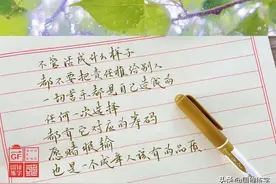 不管活成什么样子
都不要把责任推给别人
一切喜怒都是自己造成的
任何一次选择
都有它对应的筹码
愿赌服输
也是一个成年人该有的品质
GF